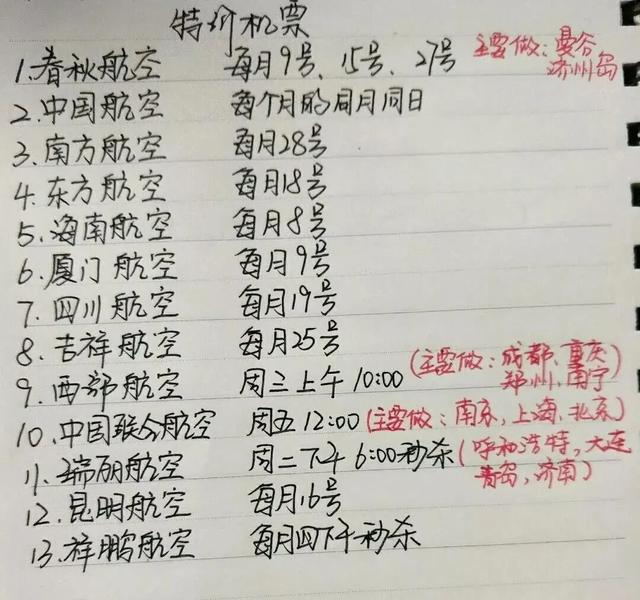 特价机票
1.春秋航空 每月9号、15号、27号 主要做:曼谷
济州岛
2.中国航空 每个月的同月同日
3.南方航空 每月28号
4.东方航空 每月18号
5.海南航空 每月8号
6.厦门航空 每月9号
7.四川航空 每月19号
8.吉祥航空 每月25号
9.西部航空 周三上午10:00 (主要做:成都、重庆
郑州、南宁
10.中国联合航空 周五12:00(主要做:南京,上海,北京)
11.瑞丽航空 周二下午6:00秒杀(呼和浩特,大连
青岛,济南)
12.昆明航空 每月16号
13.祥鹏航空 每月四下午秒杀